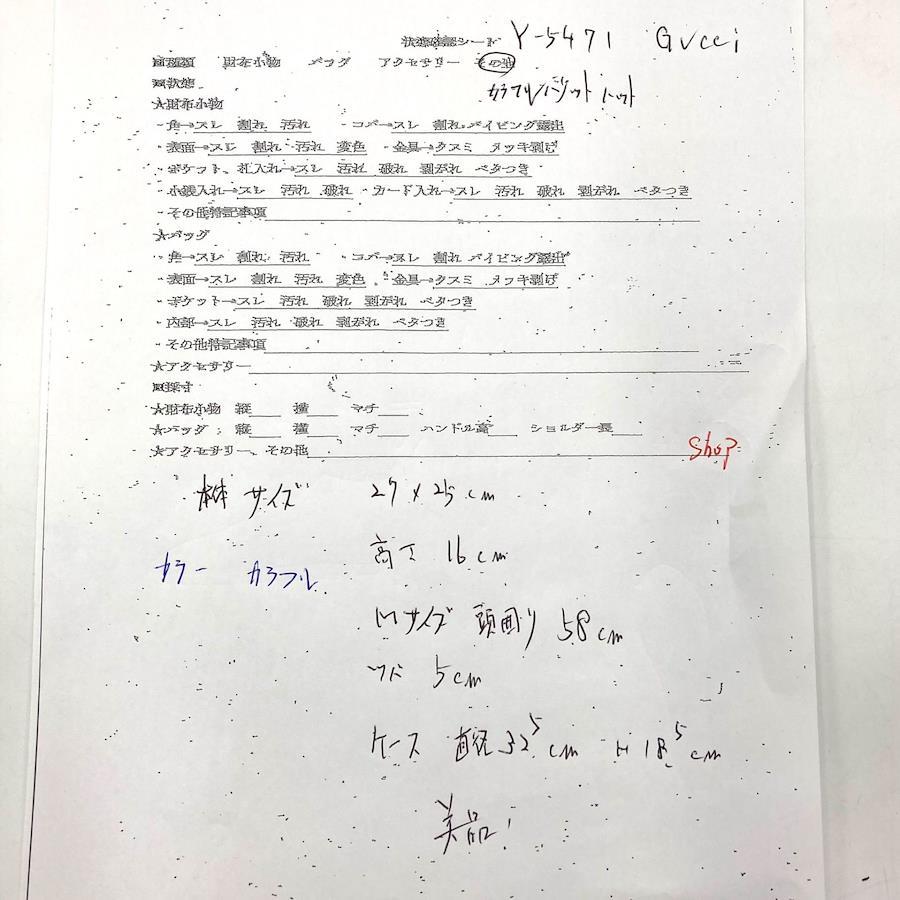 状態確認シート Y-5471 Gucci
■種類 財布小物 バッグ アクセサリー その他
■状態 カラフルバケットハット
★財布小物
・角→スレ 割れ 汚れ ・コバ→スレ 割れ パイピング露出
・表面→スレ 割れ 汚れ 変色 ・金具→クスミ メッキ剥げ
・ポケット、札入れ→スレ 汚れ 破れ 剥がれ ベタつき
・小銭入れ→スレ 汚れ 破れ ・カード入れ→スレ 汚れ 破れ 剥がれ ベタつき
・その他特記事項
★バッグ
・角→スレ 割れ 汚れ ・コバ→スレ 割れ パイピング露出
・表面→スレ 割れ 汚れ 変色 ・金具→クスミ メッキ剥げ
・ポケット→スレ 汚れ 破れ 剥がれ ベタつき
・内部→スレ 汚れ 破れ 剥がれ ベタつき
・その他特記事項
★アクセサリー
■採寸
★財布小物 縦 横 マチ
★バッグ 縦 横 マチ ハンドル高 ショルダー長
★アクセサリー、その他
shop
本体サイズ 27×25cm
高さ 16cm
カラー カラフル
Mサイズ 頭囲り 58cm
ツバ 5cm
ケース 直径32.5cm H18.5cm
美品!